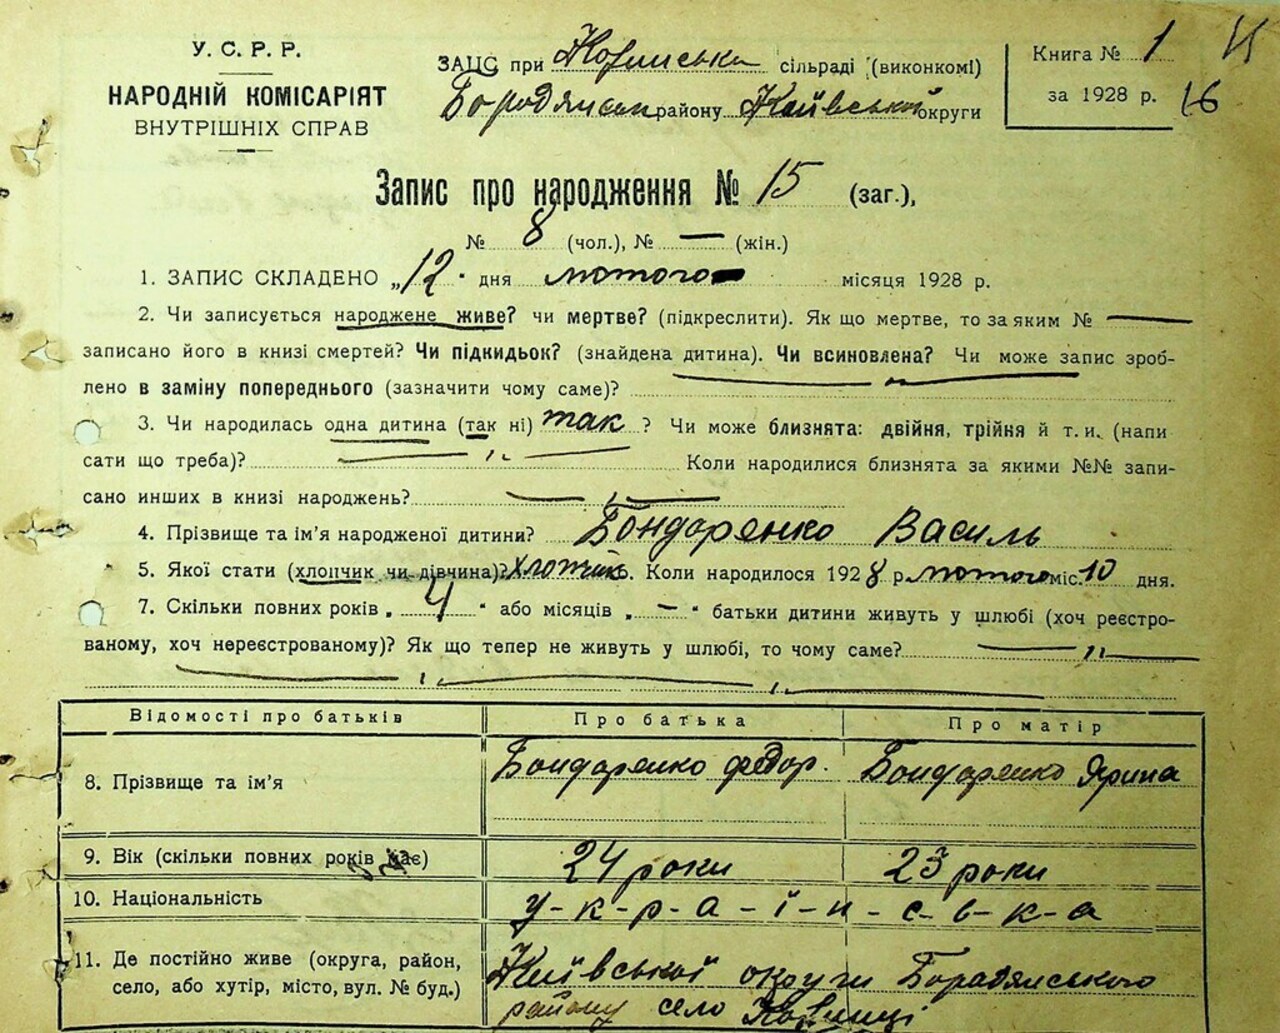 У. С. Р. Р.
НАРОДНІЙ КОМІСАРІЯТ
ВНУТРІШНІХ СПРАВ
ЗАЦС при сільраді (виконкомі)
Бородянськ району Київської округи
Книга № 1
за 1928 р. 16
Запис про народження № 15 (заг.),
№ 8 (чол.), № — (жін.)
1. ЗАПИС СКЛАДЕНО „12" дня лютого місяця 1928 р.
2. Чи записується народжене живе? чи мертве? (підкреслити). Як що мертве, то за яким № —
записано його в книзі смертей? Чи підкидьок? (знайдена дитина). Чи всиновлена? Чи може запис зроб-
лено в заміну попереднього (зазначити чому саме)?
3. Чи народилась одна дитина (так ні) так? Чи може близнята: двійня, трійня й т. и. (напи
сати що треба)? — „ — Коли народилися близнята за якими №№ запи-
сано инших в книзі народжень? — „ —
4. Прізвище та ім'я народженої дитини? Бондаренко Василь
5. Якої стати (хлопчик чи дівчина)? хлопчик 6. Коли народилося 1928 р. лютого міс. 10 дня.
7. Скільки повних років „ 4 " або місяців „ — " батьки дитини живуть у шлюбі (хоч реєстро-
ваному, хоч нереєстрованому)? Як що тепер не живуть у шлюбі, то чому саме? — „ —
— „ — „ —
Відомості про батьків Про батька Про матір
8. Прізвище та ім'я Бондаренко Федор. Бондаренко Ярина
9. Вік (скільки повних років має) 24 роки 23 роки
10. Національність у-к-р-а-ї-н-с-ь-к-а
11. Де постійно живе (округа, район, Київської округи Бородянського
село, або хутір, місто, вул. № буд.) району село